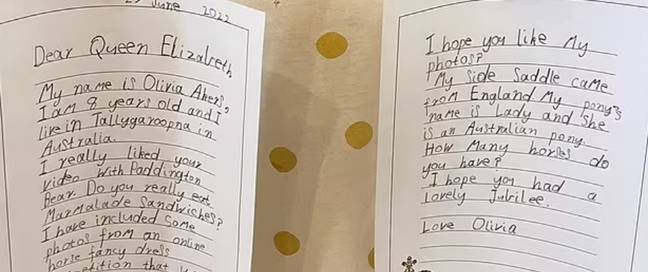 June 2022
Dear Queen Elizabeth
My name is Olivia Akers,
I am 8 years old and I
live in Tallygaroopna in
Australia.
I really liked your
video with Paddington
Bear. Do you really eat
Marmalade Sandwiches?
I have included some
photos from an online
horse fancy dress
that
I hope you like My
photos?
My side saddle came
from England My pony's
name is Lady and she
is an Australian pony.
How Many horses do
you have?
I hope you had a
lovely Jubilee.
Love Olivia